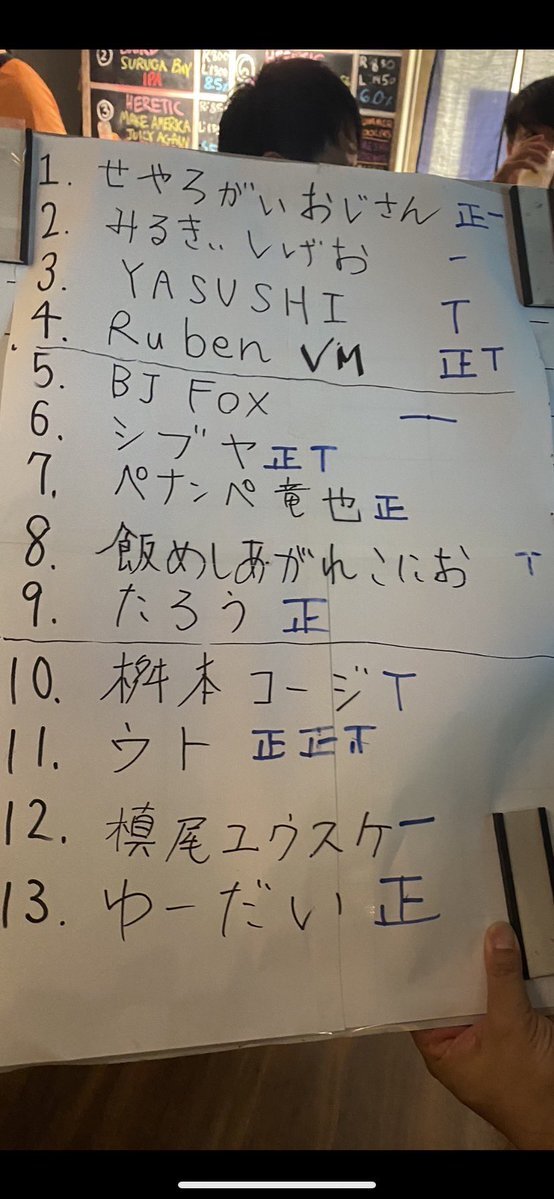 ② SURUGA BAY
IPA
8.5%
③ HERETIC
MAKE AMERICA
JUICY AGAIN
6.0%
1. せやろがいおじさん 正一
2. みるきぃしげお 一
3. YASUSHI T
4. Ruben VM 正T
5. BJ FOX 一
6. シブヤ 正T
7. ペナンペ竜也 正
8. 飯めしあがれこにお T
9. たろう 正
10. 桝本コージ T
11. ウト 正正下
12. 槙尾ユウスケ 一
13. ゆーだい 正